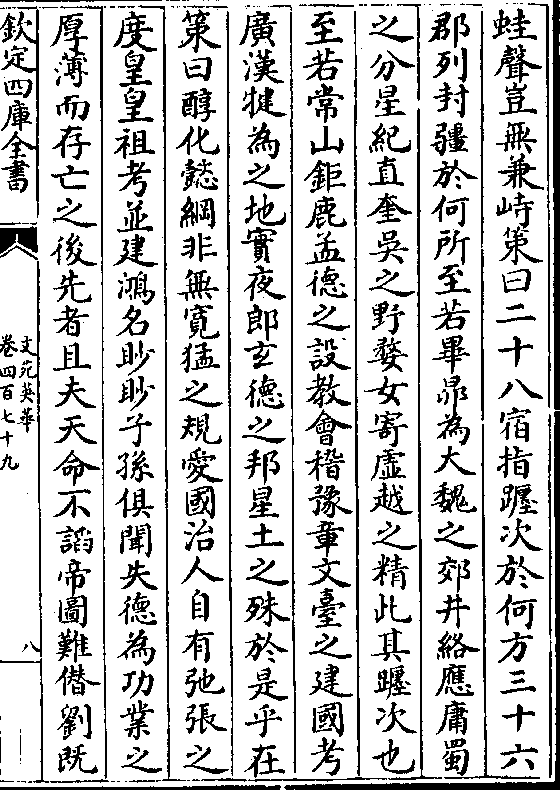 蛙聲豈無兼峙策曰二十八宿指躔次於何方三十六
郡列封疆於何所至若畢昴為大魏之郊井絡應庸蜀
之分星紀直奎吳之野婺女寄虛越之精此其躔次也
至若常山鉅鹿孟德之設教會稽豫章文臺之建國考
廣漢犍為之地實夜郎玄德之邦星土之殊於是乎在
策曰醇化懿綱非無寬猛之規愛國治人自有弛張之
度皇皇祖考並建鴻名眇眇子孫俱聞失德為功業之
厚薄而存亡之後先者且夫天命不謟帝圖難僭劉既
欽定四庫全書
文苑英華
卷四百七十九
八